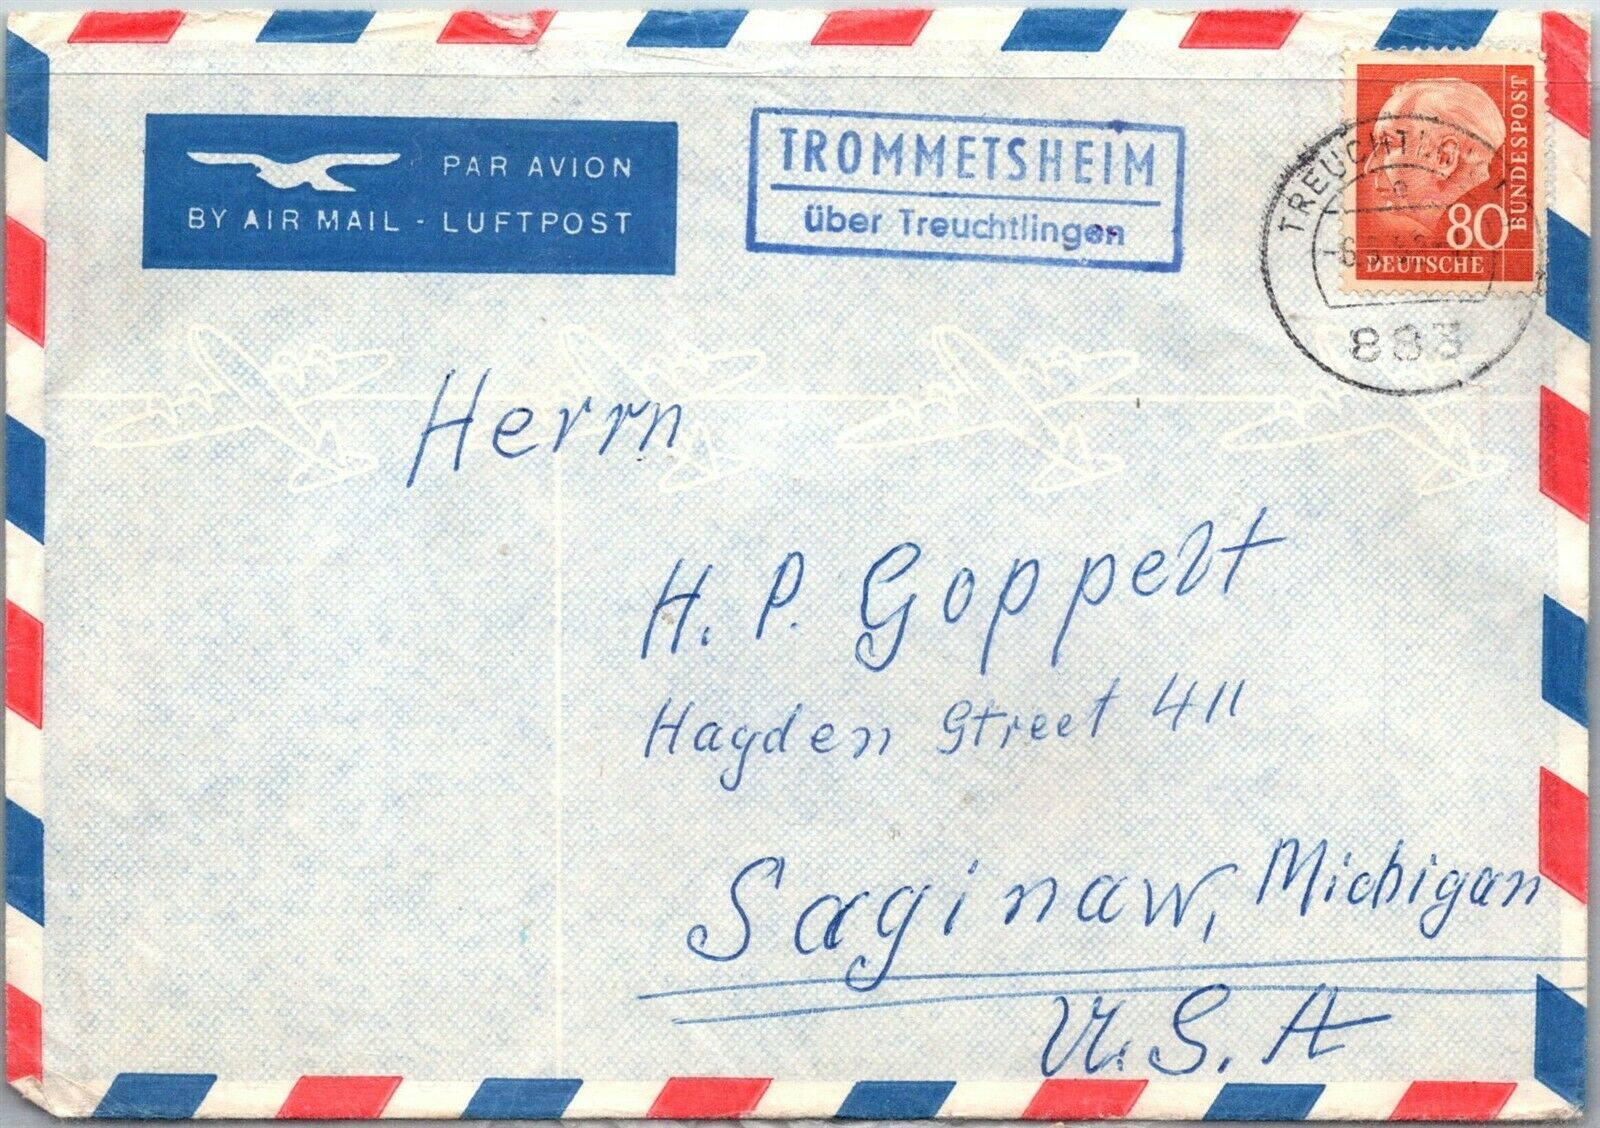 PAR AVION
BY AIR MAIL - LUFTPOST
TROMMETSHEIM
über Treuchtlingen
80
DEUTSCHE
BUNDESPOST
883
Herrn
H. P. Goppelt
Hayden Street 411
Saginaw, Michigan
U.S.A